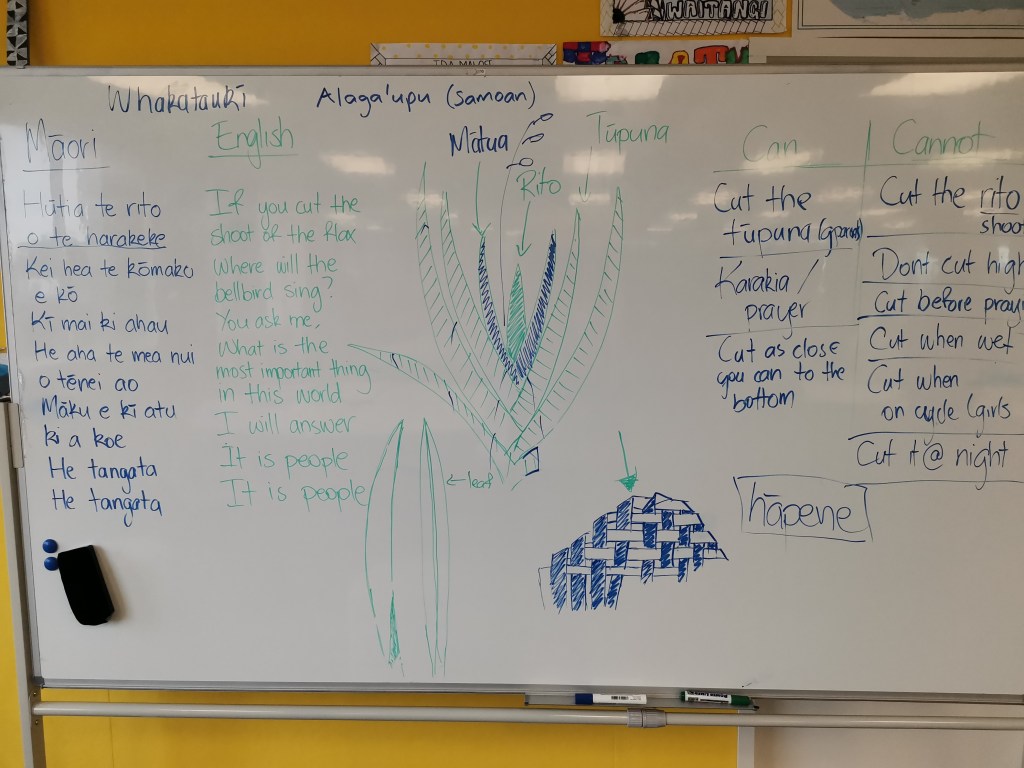 WAITANGI
Whakataukī
Alaga'upu (Samoan)
Māori
Hūtia te rito
o te harakeke
Kei hea te kōmako
e kō
Kī mai ki ahau
He aha te mea nui
o tēnei ao
Māku e kī atu
ki a koe
He tangata
He tangata
English
If you cut the
shoot of the flax
Where will the
bellbird sing?
You ask me,
What is the
most important thing
in this world
I will answer
It is people
It is people
Mātua
Rito
Tūpuna
← leaf
Can
Cut the
tūpuna
Karakia /
prayer
Cut as close
you can to the
bottom
Cannot
Cut the rito
shoo
Dont cut high
Cut before pray
Cut when wet
Cut when
on cycle (girls
Cut it @ night
hāpene